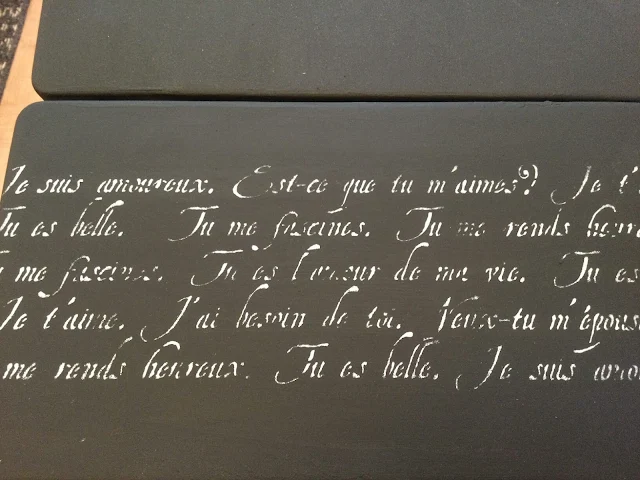 Je suis amoureux. Est-ce que tu m'aimes? Je t'
Tu es belle. Tu me fascines. Tu me rends heure
me fascines. Tu es l'amour de ma vie. Tu es
Je t'aime. J'ai besoin de toi. Veux-tu m'épous
me rends heureux. Tu es belle. Je suis amou